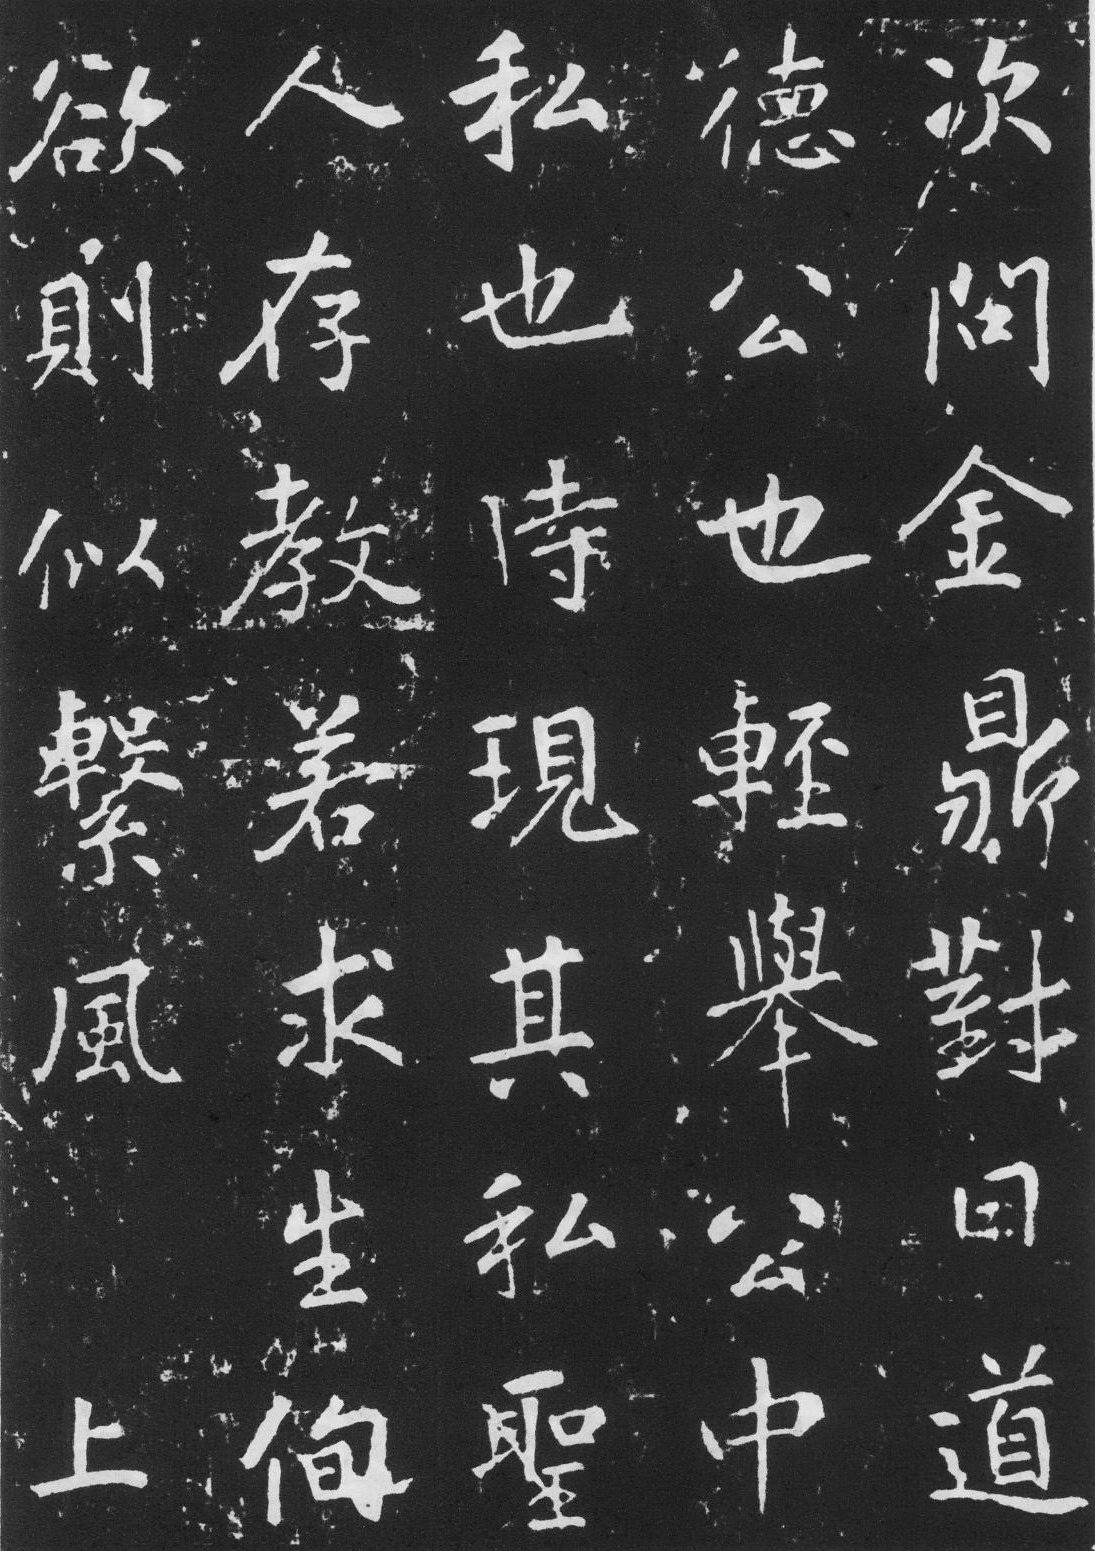 次問金鼎對曰道
德公也輕舉公中
私也時現其私聖
人存教若求生徇
欲則似繫風上